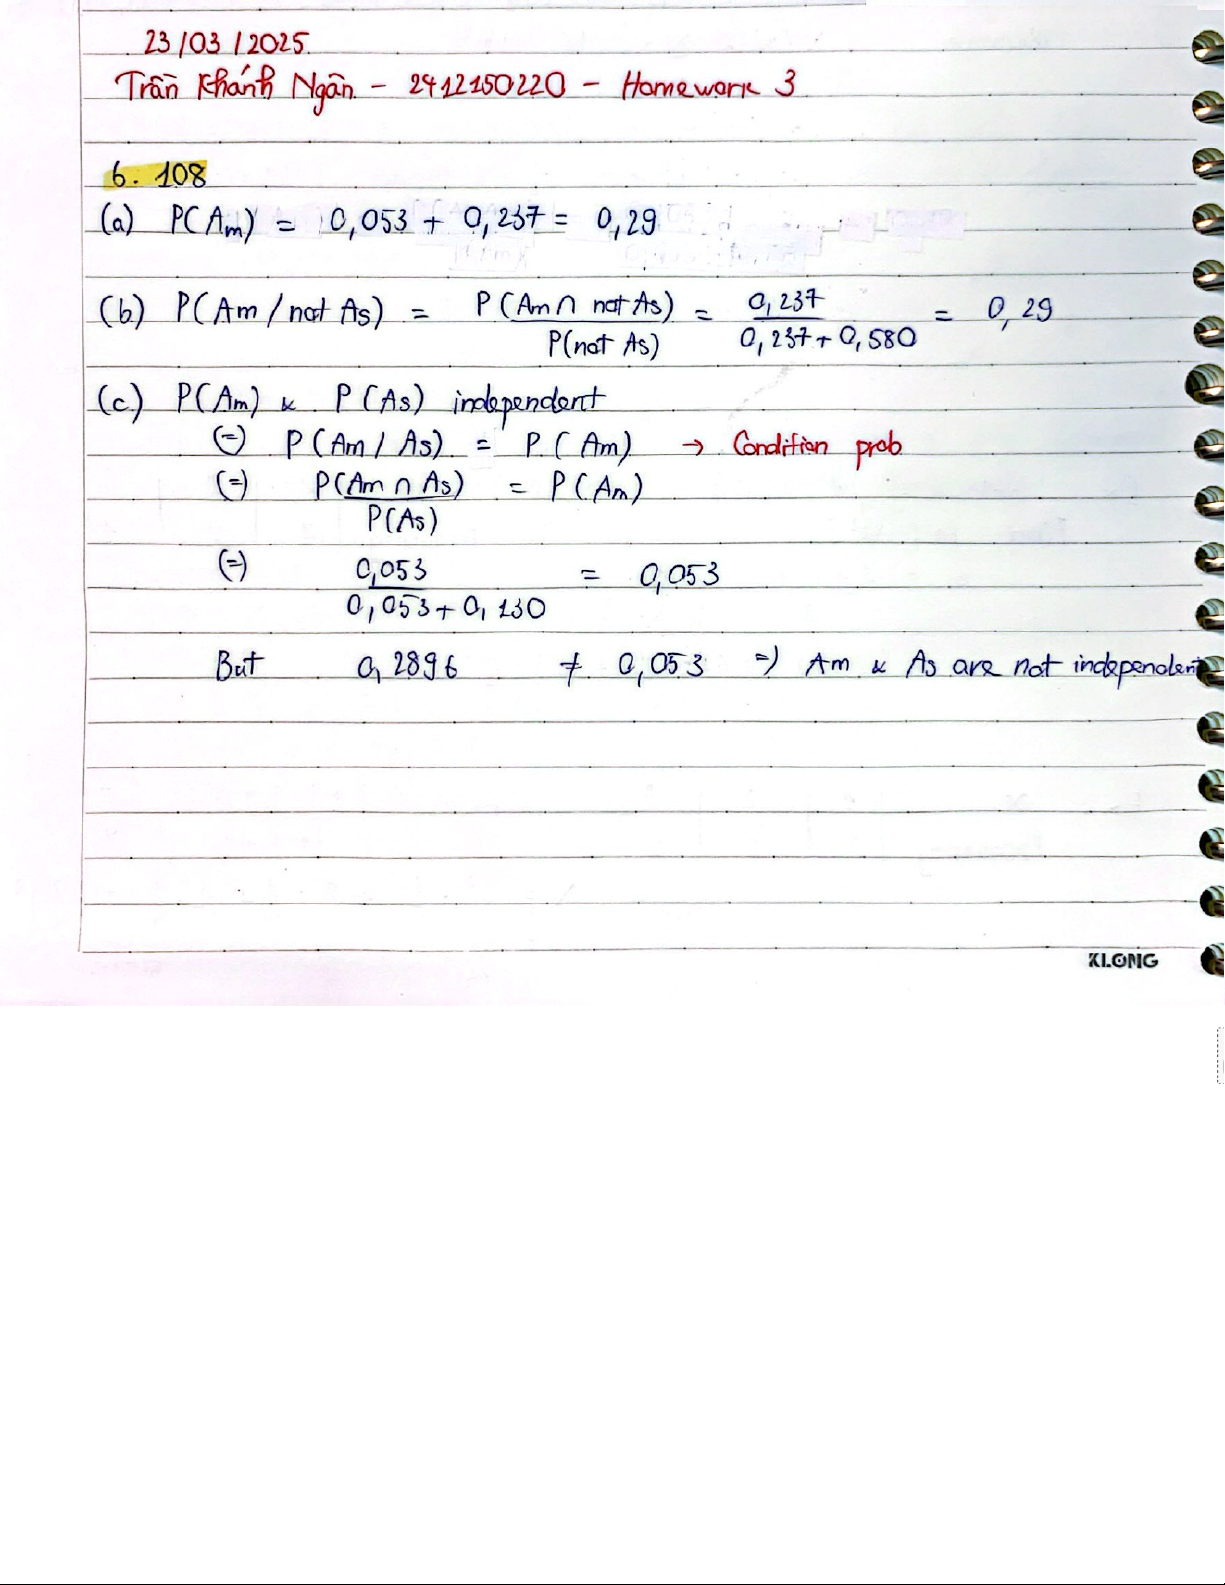 23/03/2025.
Trần Khánh Ngân - 2412150220 - Homework 3
6. 108
(a) P(Am) = 0,053 + 0,237 = 0,29
(b) P(Am / not As) = P(Am ∩ not As) / P(not As) = 0,237 / 0,237 + 0,580 = 0,29
(c) P(Am) & P(As) independent
(=) P(Am / As) = P(Am) → Condition prob
(=) P(Am ∩ As) / P(As) = P(Am)
(=) 0,053 / 0,053 + 0,130 = 0,053
But 0,2896 ≠ 0,053 => Am & As are not independent
KLONG